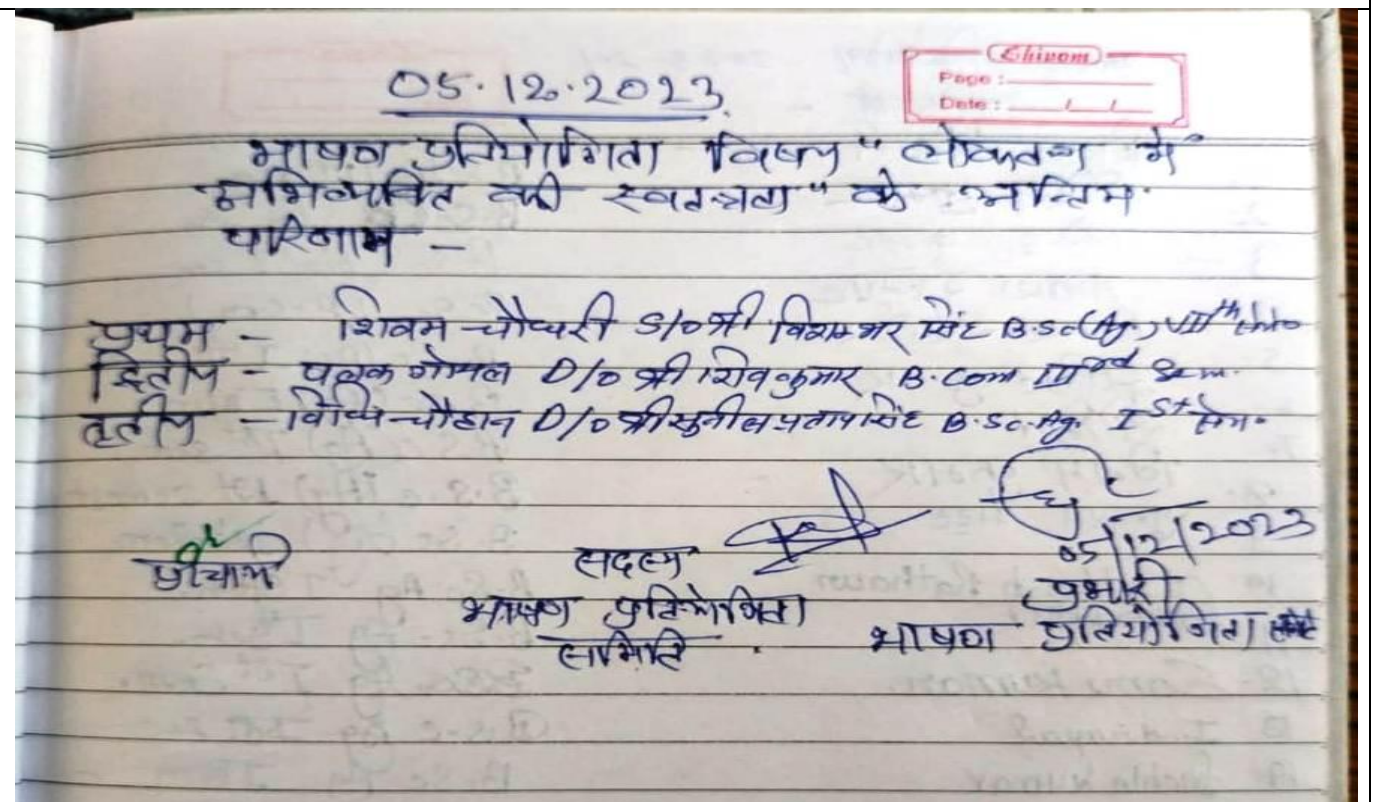 Shivom
Page :
Date : / /
05.12.2023
भाषण प्रतियोगिता विषय "लोकतन्त्र में
अभिव्यक्ति की स्वतन्त्रता" के अन्तिम
परिणाम -
प्रथम - शिवम चौधरी S/o श्री विशम्भर सिंह B.Sc(Ag.) VIIth
द्वितीय - पलक गोयल D/o श्री शिव कुमार B.Com IIIrd Sem.
तृतीय - विधि चौहान D/o श्री सुनील प्रताप सिंह B.Sc.Ag. Ist सेम.
05/12/2023
प्राचार्य सदस्य प्रभारी
भाषण प्रतियोगिता भाषण प्रतियोगिता
समिति